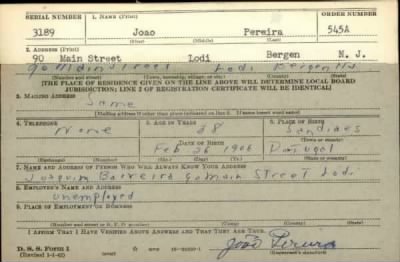 SERIAL NUMBER 1. NAME (Print) ORDER NUMBER
3189 Joao Pereira 545A
(First) (Middle) (Last)
2. ADDRESS (Print)
90 Main Street Lodi Bergen N. J.
Main Street Lodi Bergen N.J.
(Number and street) (Town, township, village, or city) (County) (State)
[THE PLACE OF RESIDENCE GIVEN ON THE LINE ABOVE WILL DETERMINE LOCAL BOARD
JURISDICTION; LINE 2 OF REGISTRATION CERTIFICATE WILL BE IDENTICAL]
3. MAILING ADDRESS
Same
[Mailing address if other than place indicated on line 2. If same insert word same]
4. TELEPHONE 5. AGE IN YEARS 6. PLACE OF BIRTH
None 38
DATE OF BIRTH
Feb 1906 Portugal
(Mo.) (Day) (Yr.)
7. NAME AND ADDRESS OF PERSON WHO WILL ALWAYS KNOW YOUR ADDRESS
Joaquim Barreira Main Street Lodi
8. EMPLOYER'S NAME AND ADDRESS
unemployed
9. PLACE OF EMPLOYMENT OR BUSINESS
(Number and street or R. F. D. number) (Town) (County) (State)
I AFFIRM THAT I HAVE VERIFIED ABOVE ANSWERS AND THAT THEY ARE TRUE.
João Pereira
D. S. S. Form 1
(Registrant's signature)